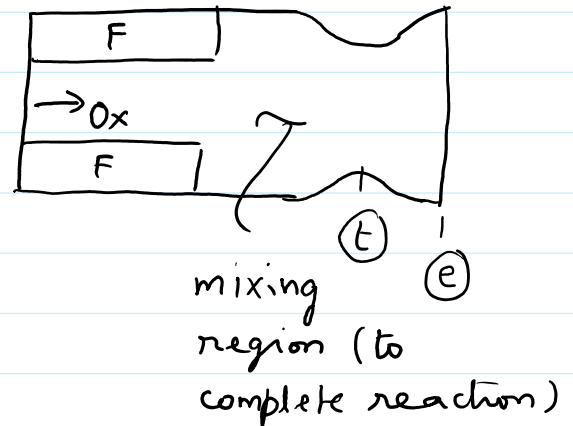 F
→ Ox
F
t
e
mixing
region (to
complete reaction)